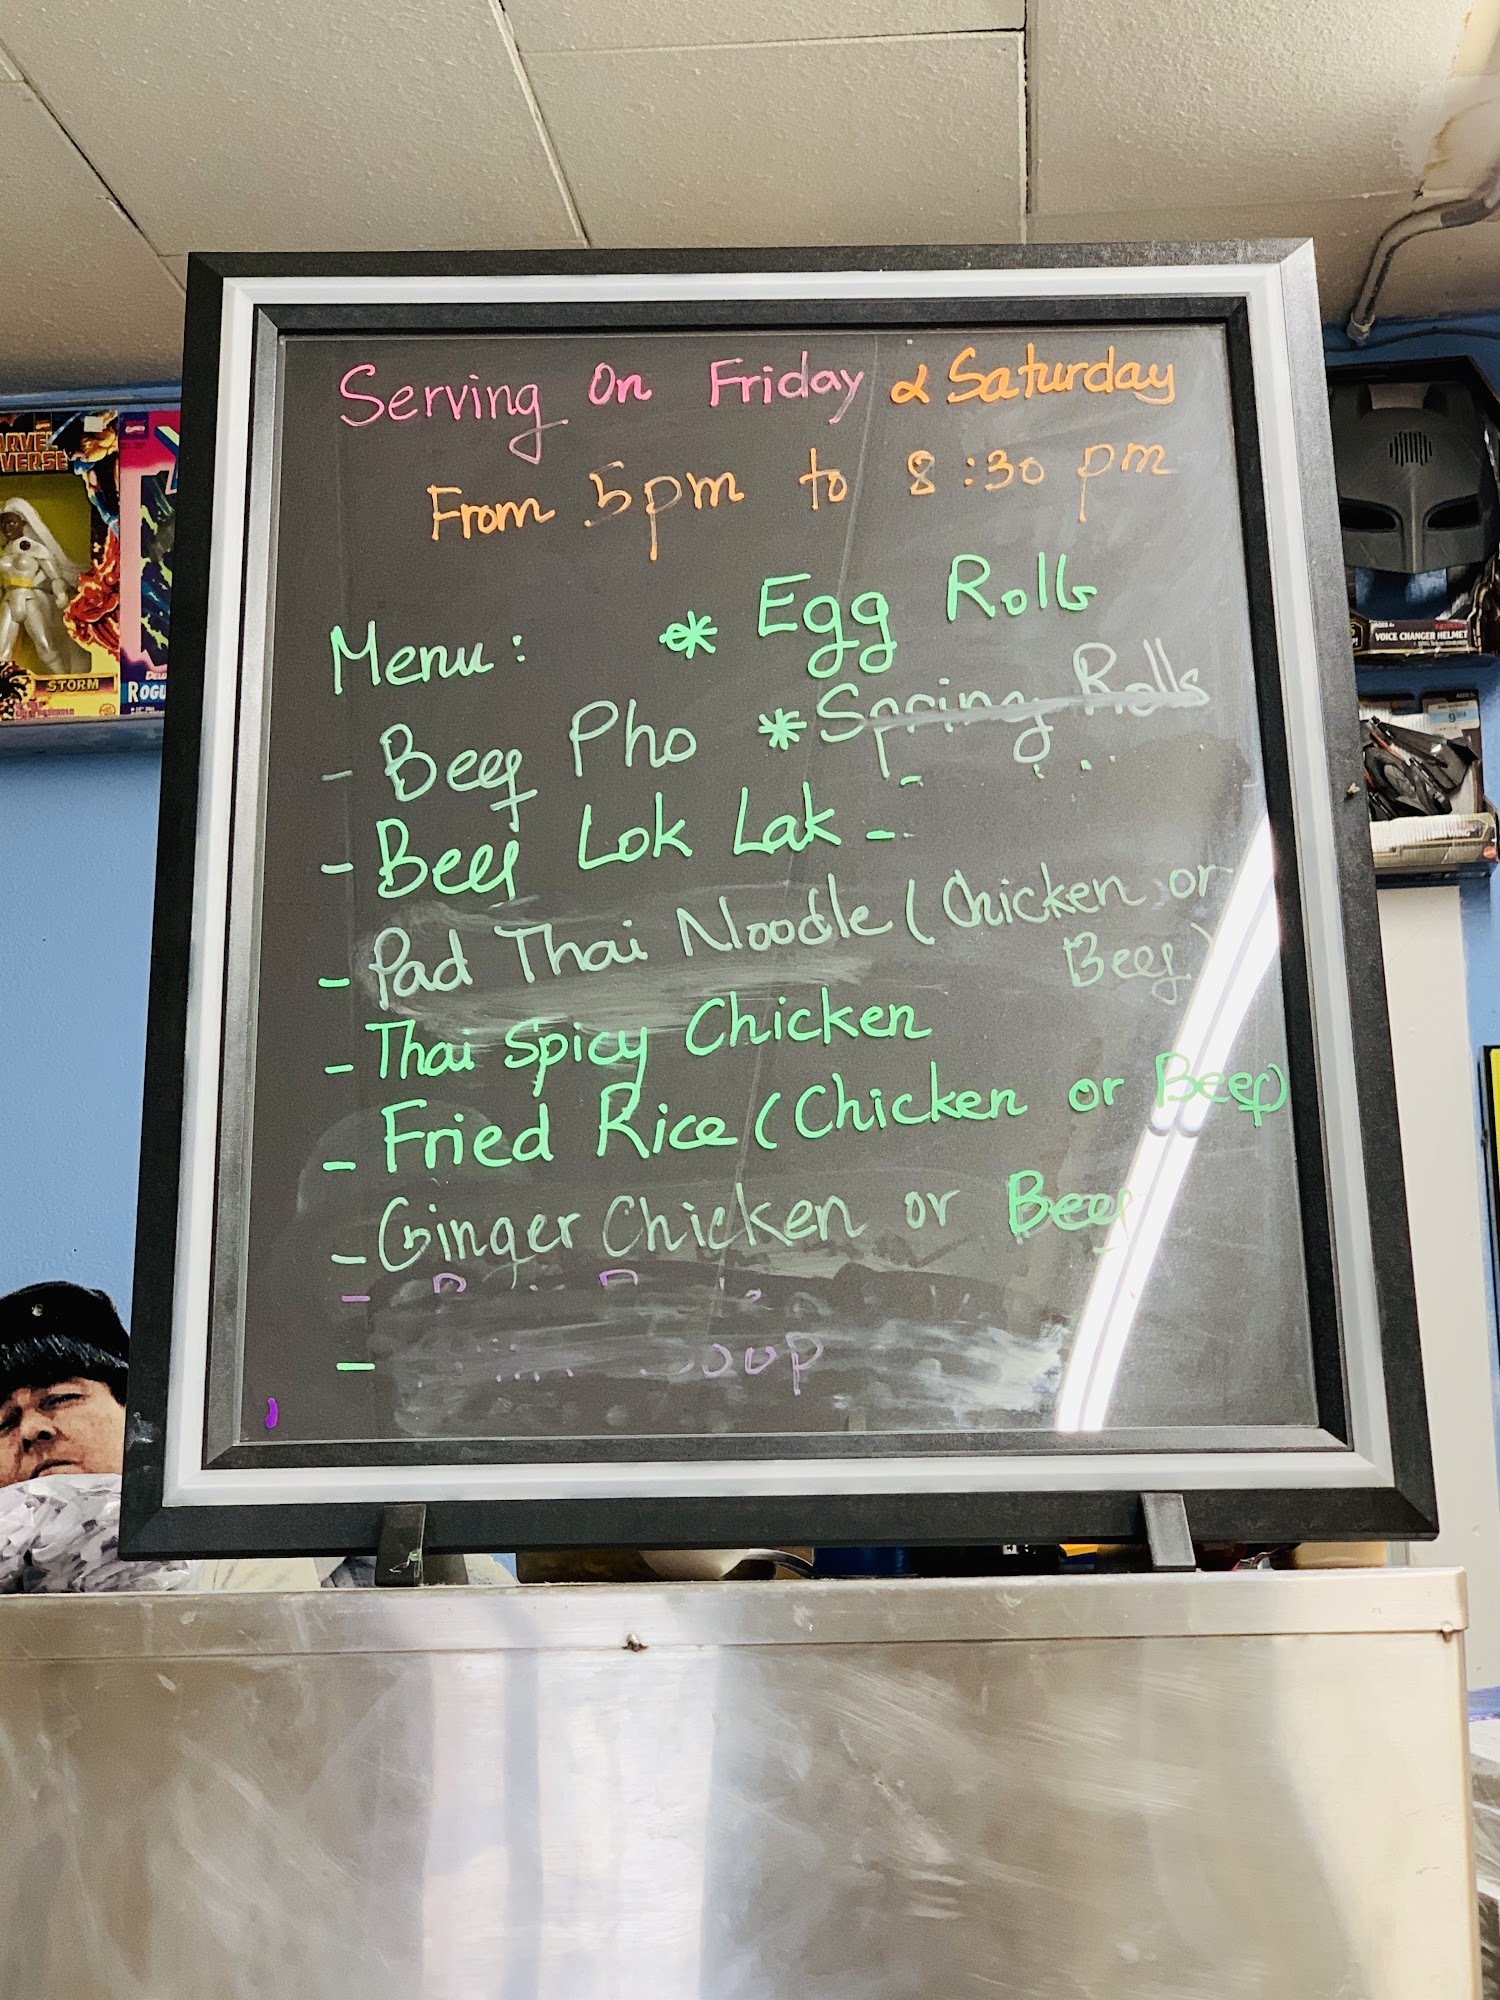 Serving On Friday & Saturday
From 5pm to 8:30 pm
Menu:
* Egg Rolls
- Beef Pho
* Spring Rolls
- Beef Lok Lak -
- Pad Thai Noodle (Chicken or
Beef)
- Thai Spicy Chicken
- Fried Rice (Chicken or Beef)
- Ginger Chicken or Beef
-
- Soup
MARVEL
UNIVERSE
STORM
ROGU
VOICE CHANGER HELMET